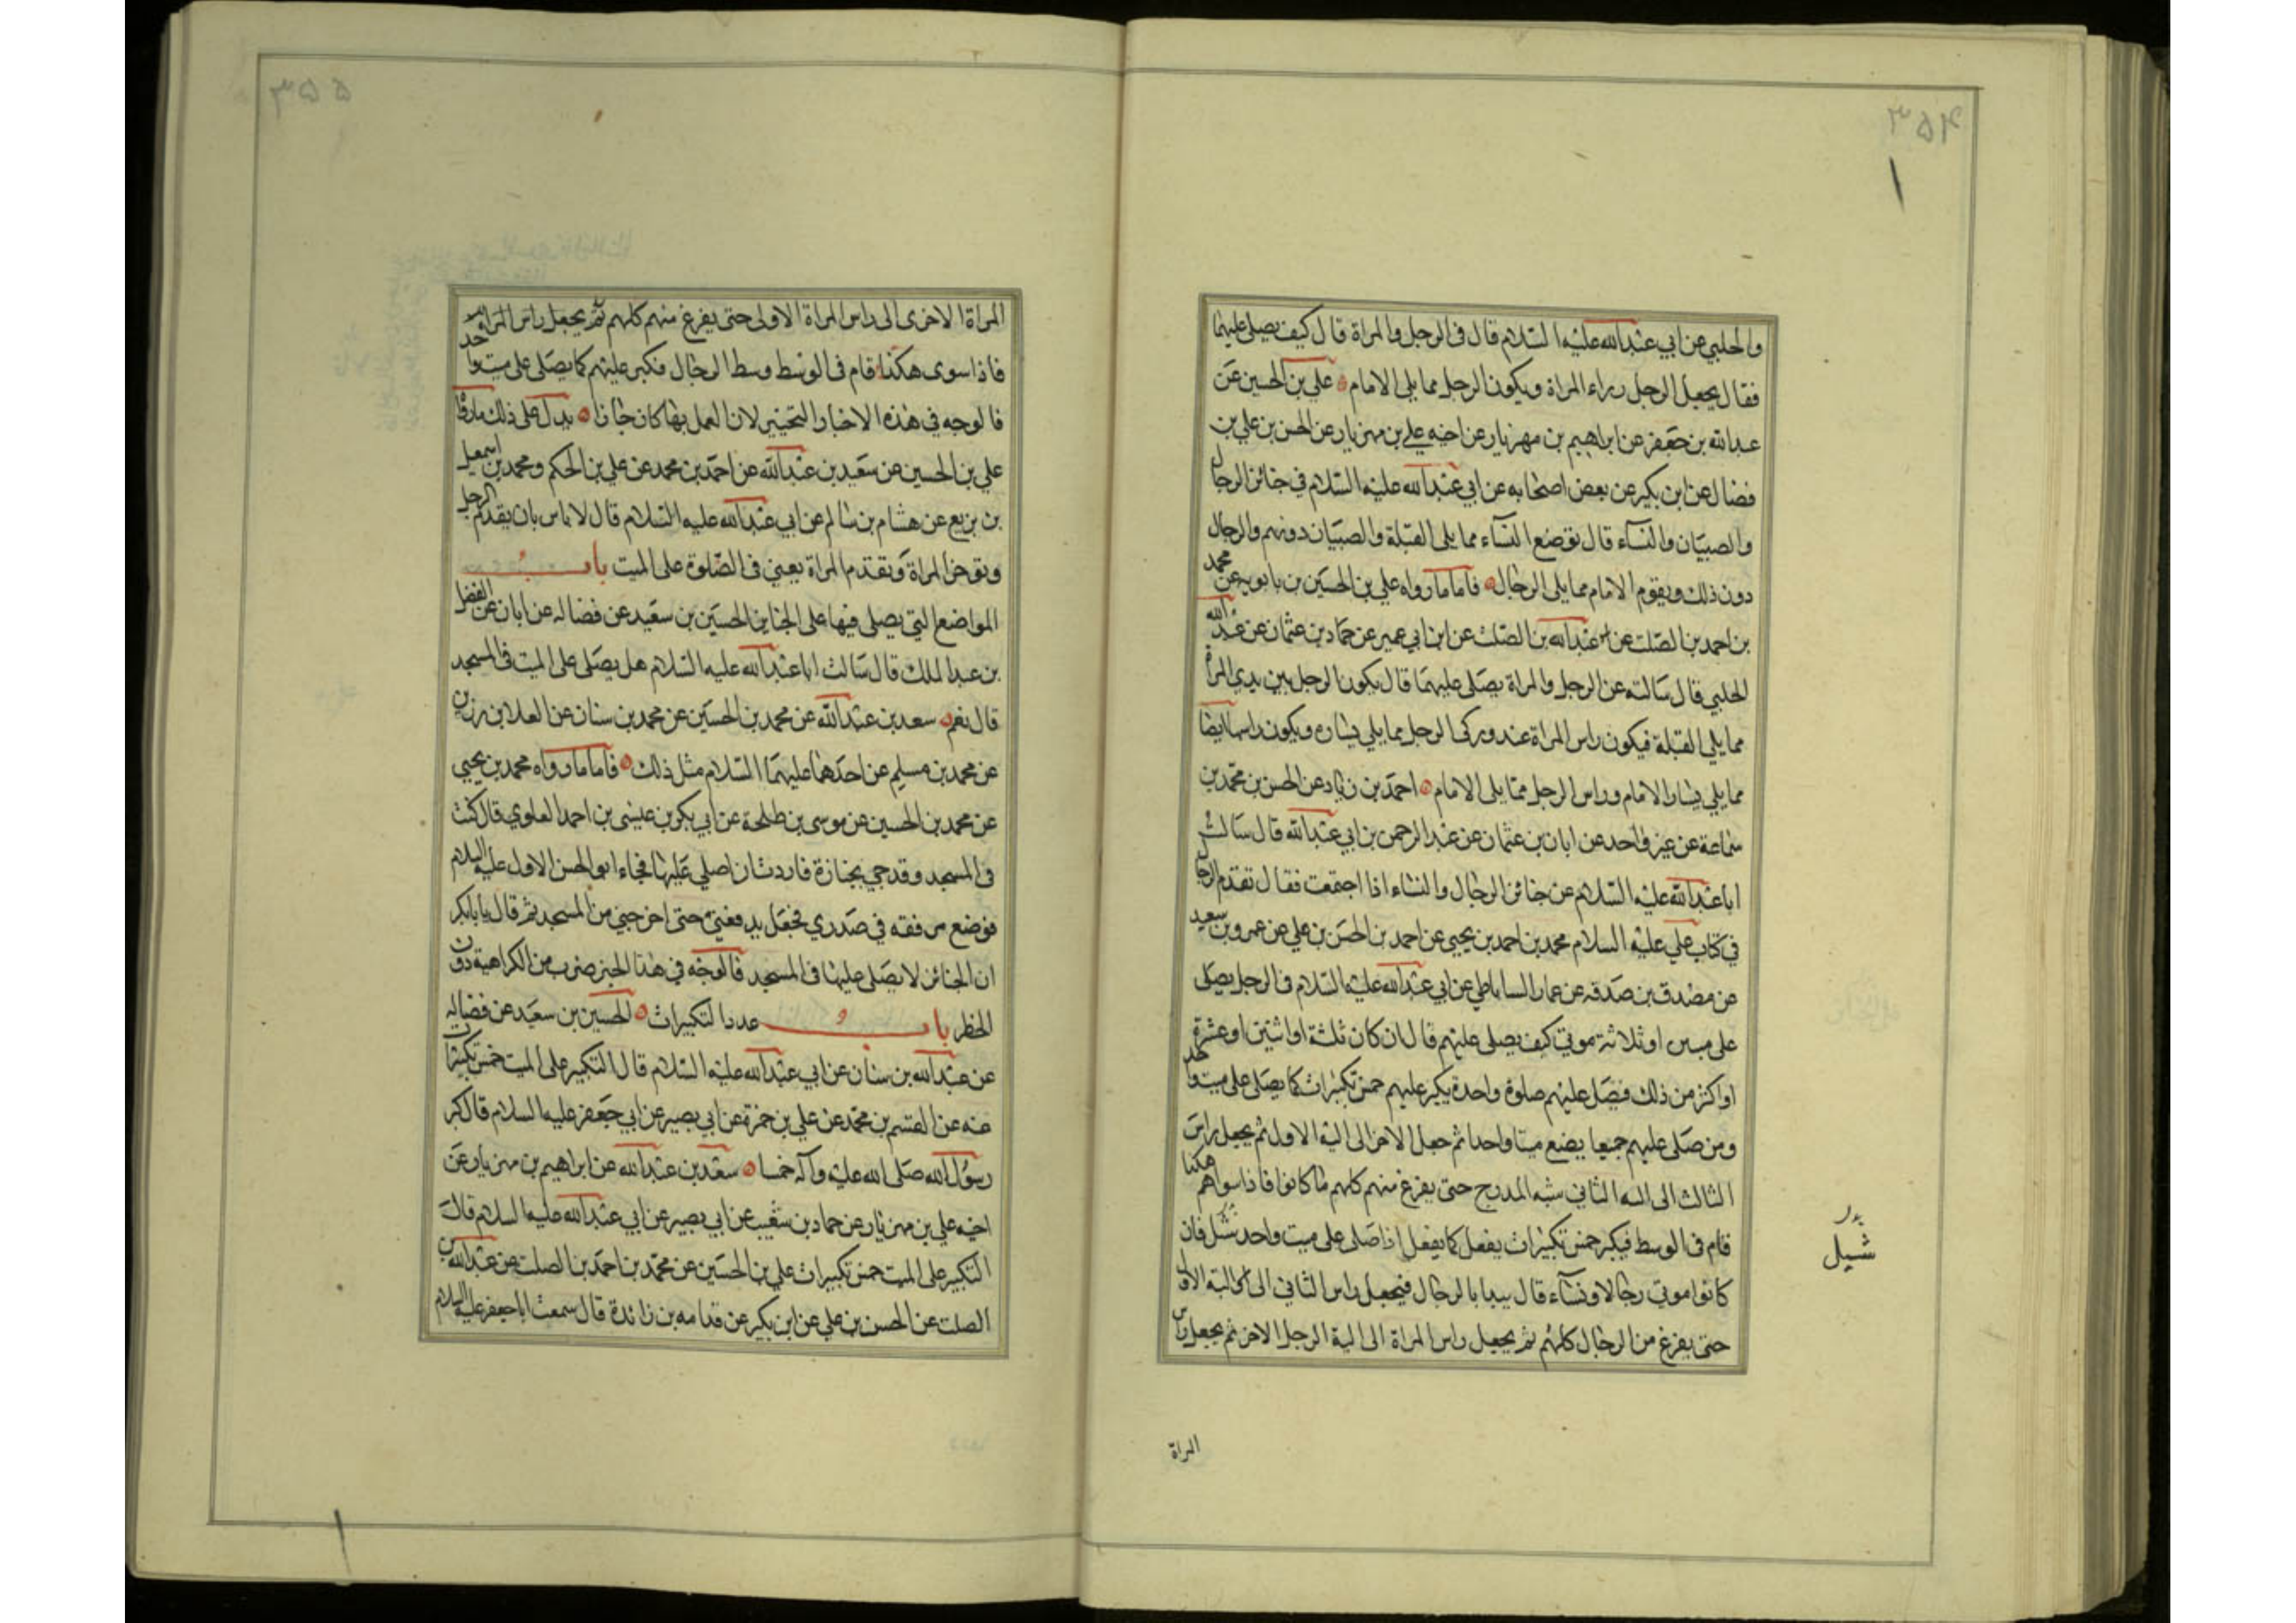 ٣٥٤
والحلبي عن ابي عبدالله عليه السلام قال في الرجل والمراة قال كيف يصلى عليهما
فقال يجعل الرجل وراء المراة ويكون الرجل مما يلي الامام علي بن الحسين عن
عبدالله بن جعفر عن ابراهيم بن مهزيار عن اخيه علي بن مهزيار عن الحسن بن علي بن
فضال عن ابن بكير عن بعض اصحابه عن ابي عبدالله عليه السلام في جنائز الرجال
والصبيان والنساء قال توضع النساء مما يلي القبلة والصبيان دونهم والرجال
دون ذلك ويقوم الامام مما يلي الرجال فاما ما رواه علي بن الحسين بن بابويه عن محمد
بن احمد بن الصلت عن عبدالله بن الصلت عن ابن ابي عمير عن حماد بن عثمان عن عبيدالله
الحلبي قال سالته عن الرجل والمراة يصلى عليهما قال يكون الرجل بين يدي المراة
مما يلي القبلة فيكون راس المراة عند وركي الرجل مما يلي يساره ويكون راسها ايضا
مما يلي يسار الامام وراس الرجل مما يلي الامام احمد بن زياد عن الحسن بن محمد بن
سماعة عن غير واحد عن ابان بن عثمان عن عبد الرحمن بن ابي عبدالله قال سالت
ابا عبدالله عليه السلام عن جنائز الرجال والنساء اذا اجتمعت فقال تقدم الرجال
في كتاب علي عليه السلام محمد بن احمد بن يحيى عن احمد بن الحسن بن علي عن عمرو بن سعيد
عن مصدق بن صدقه عن عمار الساباطي عن ابي عبدالله عليه السلام في الرجل يصلى
على ميتين او ثلاثة موتي كيف يصلى عليهم قال ان كان ثلثة او اثنين او عشرة
او اكثر من ذلك فيصل عليهم صلوة واحدة يكبر عليهم خمس تكبيرات كما يصلى على ميت واحد
ومن صلى عليهم جميعا يضع ميتا واحدا ثم جعل الاخر الى الية الاول ثم يجعل راس
الثالث الى الية الثاني شبه المدرج حتى يفرغ منهم كلهم ما كانوا فاذا سواهم هكذا
قام في الوسط فيكبر خمس تكبيرات يفعل كما يفعل اذا صلى على ميت واحد سئل فان
كانوا موتي رجالا ونساء قال يبدا بالرجال فيجعل راس الثاني الى الية الاول
حتى يفرغ من الرجال كلهم ثم يجعل راس المراة الى الية الرجل الاخر ثم يجعل راس
المراة
٣٥٥
المراة الاخرى الى راس المراة الاولى حتى يفرغ منهم كلهم ثم يجعل راس المراة
فاذا سوى هكذا قام في الوسط وسط الرجال فكبر عليهم كما يصلى على ميت واحد
فالوجه في هذه الاخبار التخيير لان العمل بها كان جائزا يدل على ذلك ما رواه
علي بن الحسين عن سعيد بن عبدالله عن احمد بن محمد عن علي بن الحكم ومحمد بن اسمعيل
بن بزيع عن هشام بن سالم عن ابي عبدالله عليه السلام قال لا باس بان يقدم الرجل
وتوخر المراة وتقدم المراة يعني في الصلوة على الميت باب
المواضع التي يصلى فيها على الجنايز الحسين بن سعيد عن فضاله عن ابان عن الفضل
بن عبد الملك قال سالت ابا عبدالله عليه السلام هل يصلى على الميت في المسجد
قال نعم سعد بن عبدالله عن محمد بن الحسين عن محمد بن سنان عن العلا بن رزين
عن محمد بن مسلم عن احدهما عليهما السلام مثل ذلك فاما ما رواه محمد بن يحيى
عن محمد بن الحسين عن موسى بن طلحة عن ابي بكر بن عيسى بن احمد العلوي قال كنت
في المسجد وقد جي بجنازة فاردت ان اصلي عليها فجاء ابو الحسن الاول عليه السلام
فوضع مرفقه في صدري فجعل يدفعني حتى اخرجني من المسجد ثم قال يا بابكر
ان الجنائز لا يصلى عليها في المسجد فالوجه في هذا الخبر ضرب من الكراهية دون
الحظر باب عدد التكبيرات الحسين بن سعيد عن فضاله
عن عبدالله بن سنان عن ابي عبدالله عليه السلام قال التكبير على الميت خمس تكبيرات
عنه عن القسم بن محمد عن علي بن حمزة عن ابي بصير عن ابي جعفر عليه السلام قال كبر
رسول الله صلى الله عليه وآله خمسا سعد بن عبدالله عن ابراهيم بن مهزيار عن
اخيه علي بن مهزيار عن حماد بن شعيب عن ابي بصير عن ابي عبدالله عليه السلام قال
التكبير على الميت خمس تكبيرات علي بن الحسين عن محمد بن احمد بن الصلت عن عبدالله بن
الصلت عن الحسن بن علي عن ابن بكر عن قدامه بن زائدة قال سمعت ابا جعفر عليه السلام